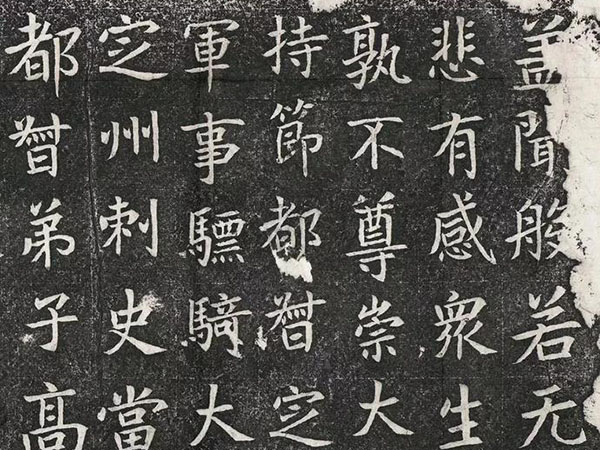 盖聞般若无
悲有感衆生
孰不尊崇大
持節都督定
軍事驃騎大
定州刺史當
都督弟子高